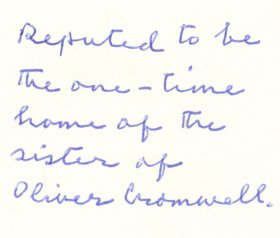 Reputed to be
the one-time
home of the
sister of
Oliver Cromwell.